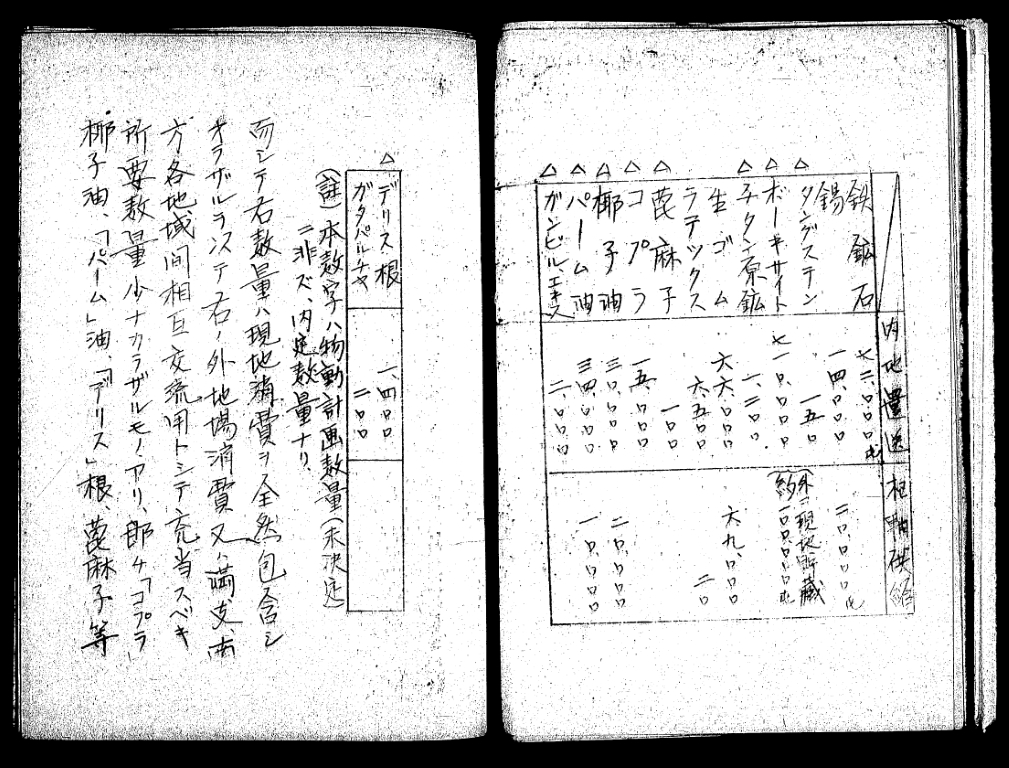 内地還送
枢軸供給
鉄鉱石 七二、〇〇〇瓲
錫 一四、〇〇〇 二〇、〇〇〇瓲
△タングステン 一五〇
△ボーキサイト 七一〇、〇〇〇 (外ニ現地貯蔵約一〇〇、〇〇〇瓲)
△チタン原鉱 一、二〇〇
生ゴム 六六、〇〇〇 六九、〇〇〇
ラテックス 六、五〇〇 二〇
△蓖麻子 一〇〇
△コプラ 一五、〇〇〇
△椰子油 三〇、〇〇〇 二〇、〇〇〇
△パーム油 三四、〇〇〇 一〇、〇〇〇
△ガンビル、エキス 二、〇〇〇
△デリス根 一、四〇〇
ガタペルチャ 二〇〇
(註)本数字ハ物動計画数量(未決定)
ニ非ズ、内定数量ナリ、
而シテ右数量ハ現地消費ヲ全然包含シ
オラザルヲ以テ右ノ外地場消費又ハ満、支、南
方各地域間相互交流用トシテ充当スベキ
所要数量少ナカラザルモノアリ、即チ「コプラ」
椰子油、「パーム」油、「デリス」根、蓖麻子等